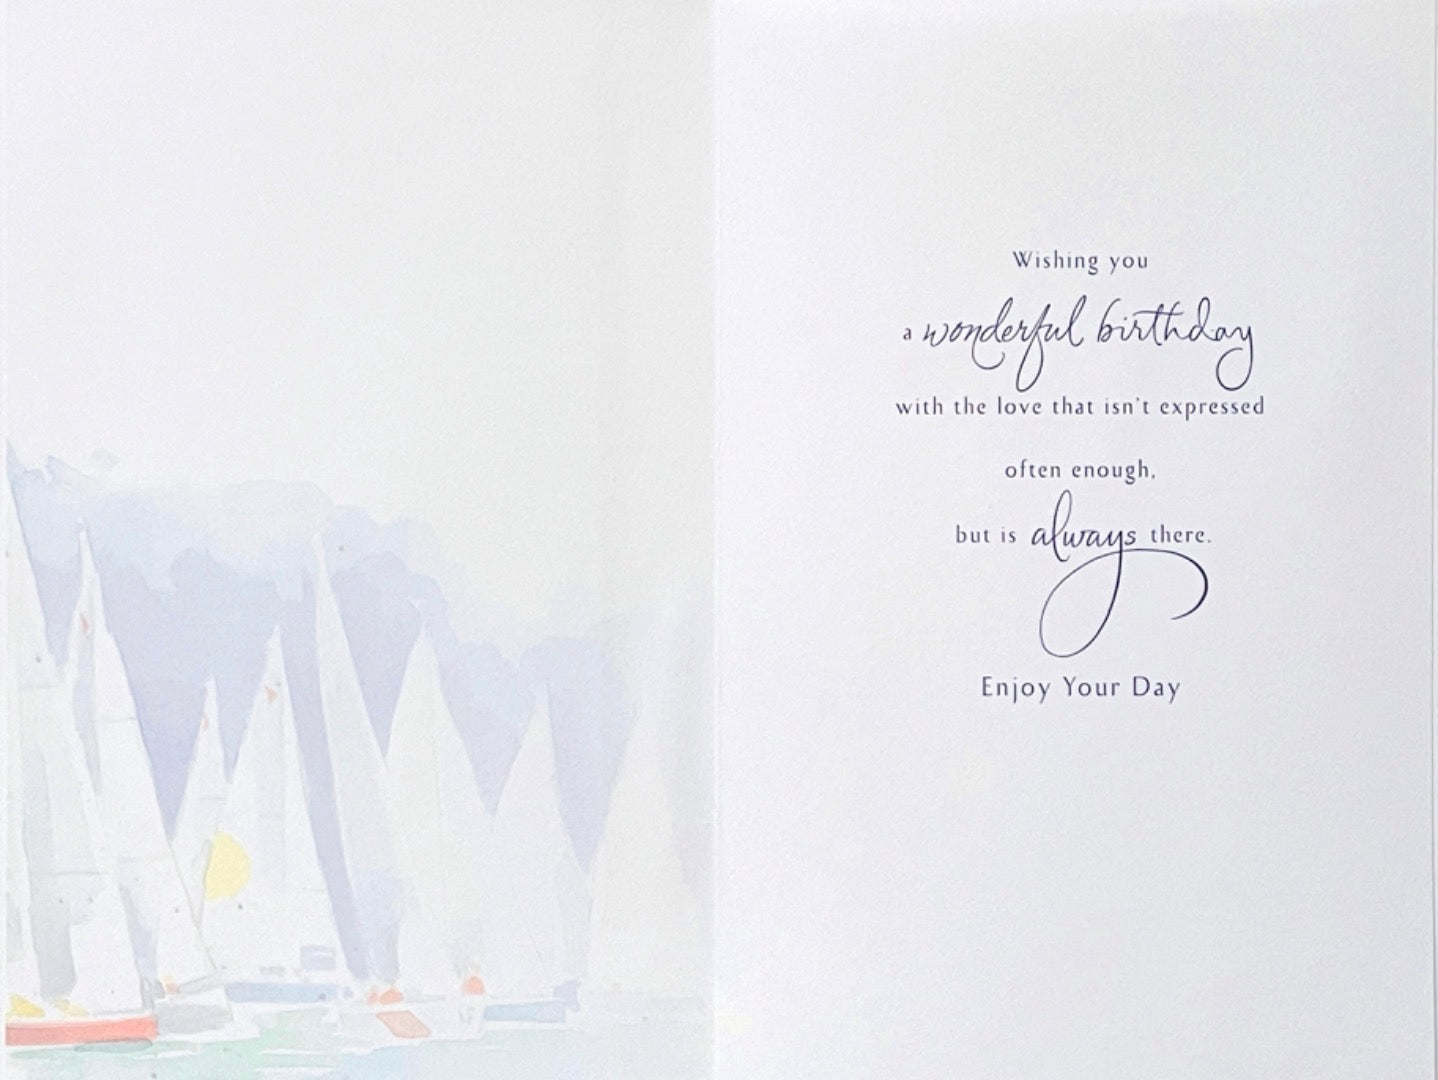 Wishing you
a wonderful birthday
with the love that isn't expressed
often enough,
but is always there.
Enjoy Your Day